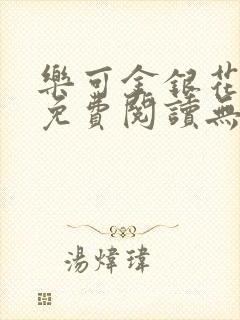 樂可金銀花
免費閱讀無
湯煒瑋